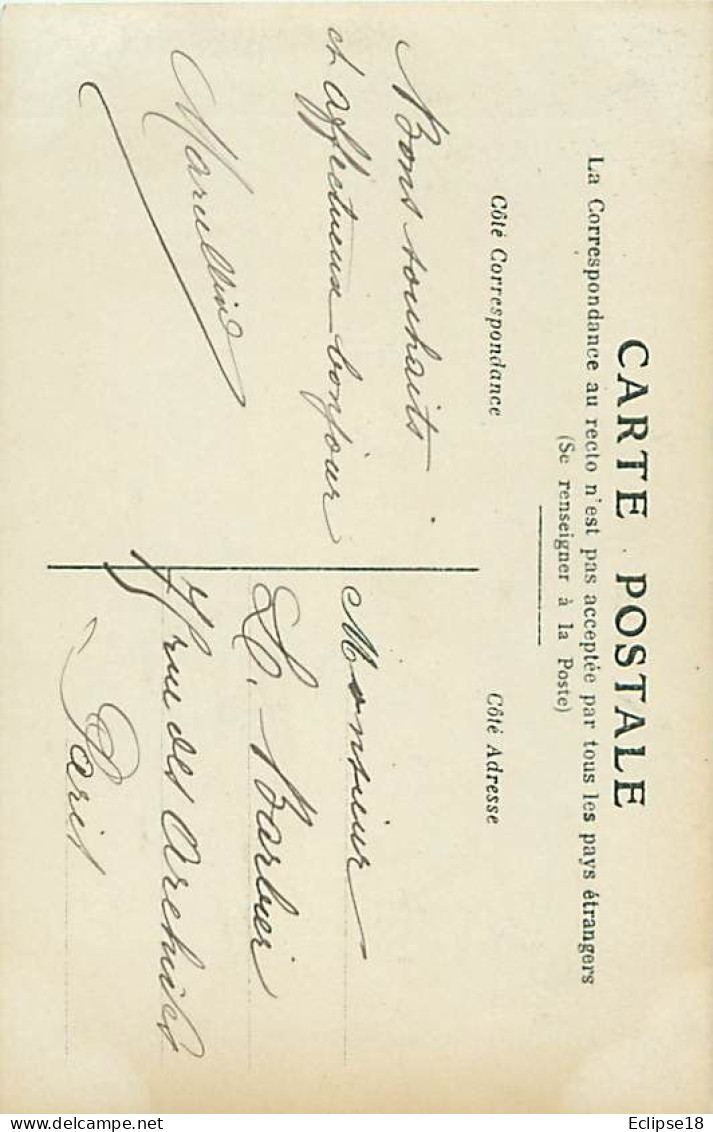 CARTE POSTALE
La Correspondance au recto n'est pas acceptée par tous les pays étrangers
(Se renseigner à la Poste)
Côté Correspondance
Bons souhaits
et affectueux bonjour
Côté Adresse
Monsieur
Barbier
rue des Archives
Paris
Eclipse18